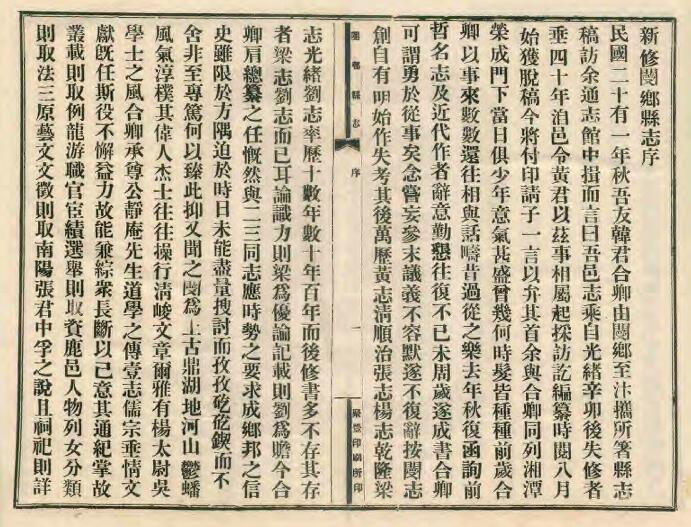 新修閿鄉縣志序
民國二十有一年秋吾友韓君合卿由閿鄉至汴攜所著縣志
稿訪余通志館中揖而言曰吾邑志乘自光緒辛卯後失修者
垂四十年洎邑令黃君以茲事相屬起採訪訖編纂時閱八月
始獲脫稿今將付印請子一言以弁其首余與合卿同列湘潭
榮成門下當日俱少年意氣甚盛曾幾何時髮皆種種前歲合
卿以事來數數還往相與話疇昔過從之樂去年秋復函詢前
哲名志及近代作者辭意勤懇往復不已未周歲遂成書合卿
可謂勇於從事矣念嘗妄參末議義不容默遂不復辭按閿志
創自有明始作失考其後萬歷黃志清順治張志楊志乾隆梁
閿鄉縣志
序
一
聚營印刷所印
志光緒劉志率歷十數年數十年百年而後修書多不存其存
者梁志劉志而已耳論識力則梁爲優論記載則劉爲贍今合
卿肩總纂之任慨然與二三同志應時勢之要求成鄉邦之信
史雖限於方隅迫於時日未能盡量搜討而孜孜矻矻鍥而不
舍非至專篤何以臻此抑又聞之閿爲上古鼎湖地河山鬱蟠
風氣淳樸其偉人杰士往往操行清峻文章爾雅有楊太尉吳
學士之風合卿承尊公靜庵先生道學之傳壹志儒宗垂情文
獻旣任斯役不懈益力故能兼綜衆長斷以己意其通紀掌故
叢載則取例龍游職官宦績選舉則取資鹿邑人物列女分類
則取法三原藝文文徵則取南陽張君中孚之說且祠祀則詳